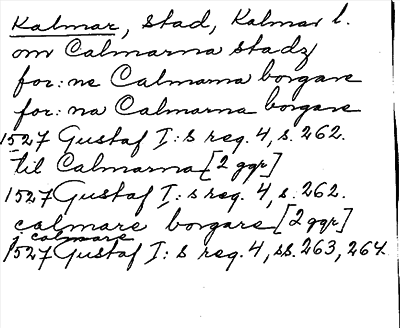 Kalmar, stad, Kalmar l.
om Calmarna stadz
for: ne Calmarna borgare
for: na Calmarna borgare
1527 Gustaf I: s reg. 4, s. 262.
til Calmarna [2 ggr]
1527 Gustaf I: s reg. 4, s. 262.
calmare borgare [2 ggr]
j calmare
1527 Gustaf I: s reg. 4, ss. 263, 264